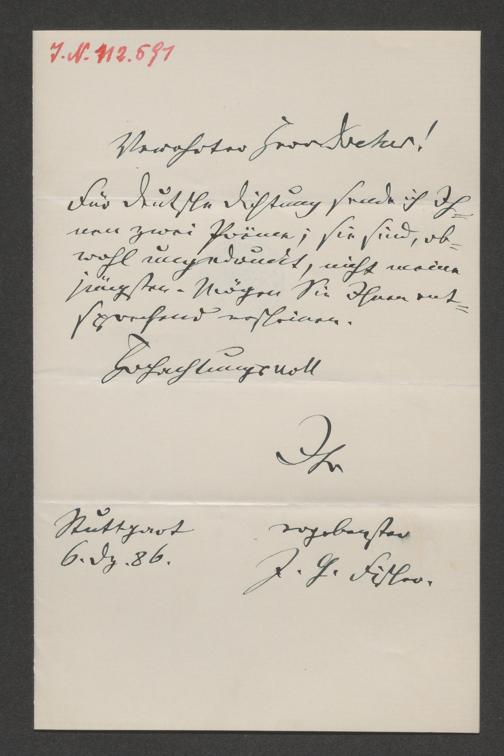 J. N. 112.691
Verehrter Herr Doctor!
Für deutsche Dichtung sende ich Ih=
nen zwei Poëme; sie sind, ob=
wohl ungedruckt, nicht meine
jüngsten. Mögen Sie Ihnen ent=
sprechend erscheinen.
Hochachtungsvoll
Ihr
Stuttgart
6. Dz. 86.
ergebenster
J. G. Fischer.